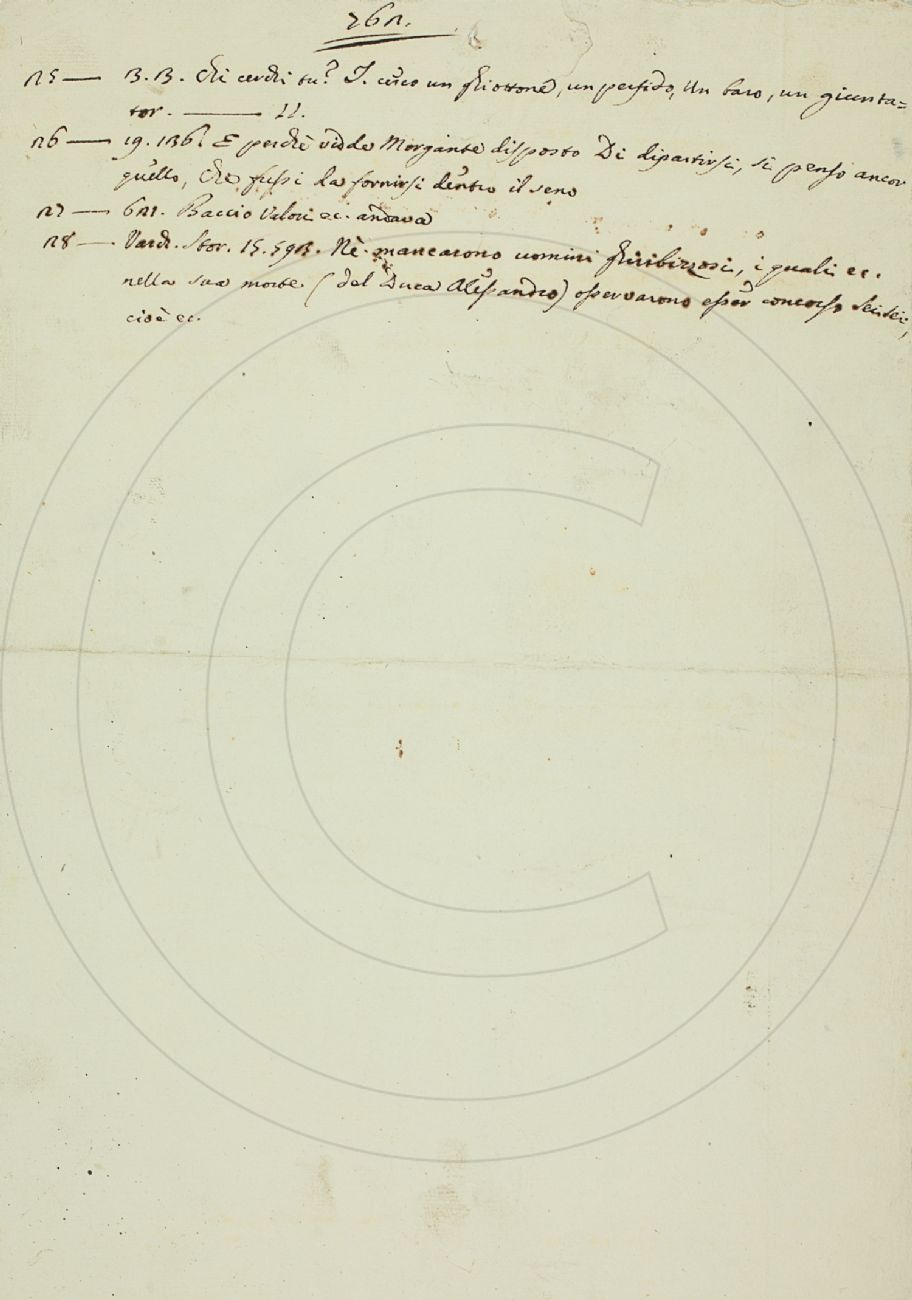 762.
25 — 3. 3. Chi cerchi tu? I. cerco un ghiottone, un perfido, Un baro, un giunta=
tor. — 11.
26 — 19. 136. E perchè vidde Morgante disposto Di dipartirsi, si pensò ancor
quello, Che fussi da fornirsi dentro il seno
27 — 621. Baccio Valori ec. andava
28 — Varch. Stor. 15. 593. Nè mancarono uomini ghiribizzosi, i quali ec.
nella sua morte (del Duca Alessandro) osservarono esser concorso sei sei,
cioè ec.